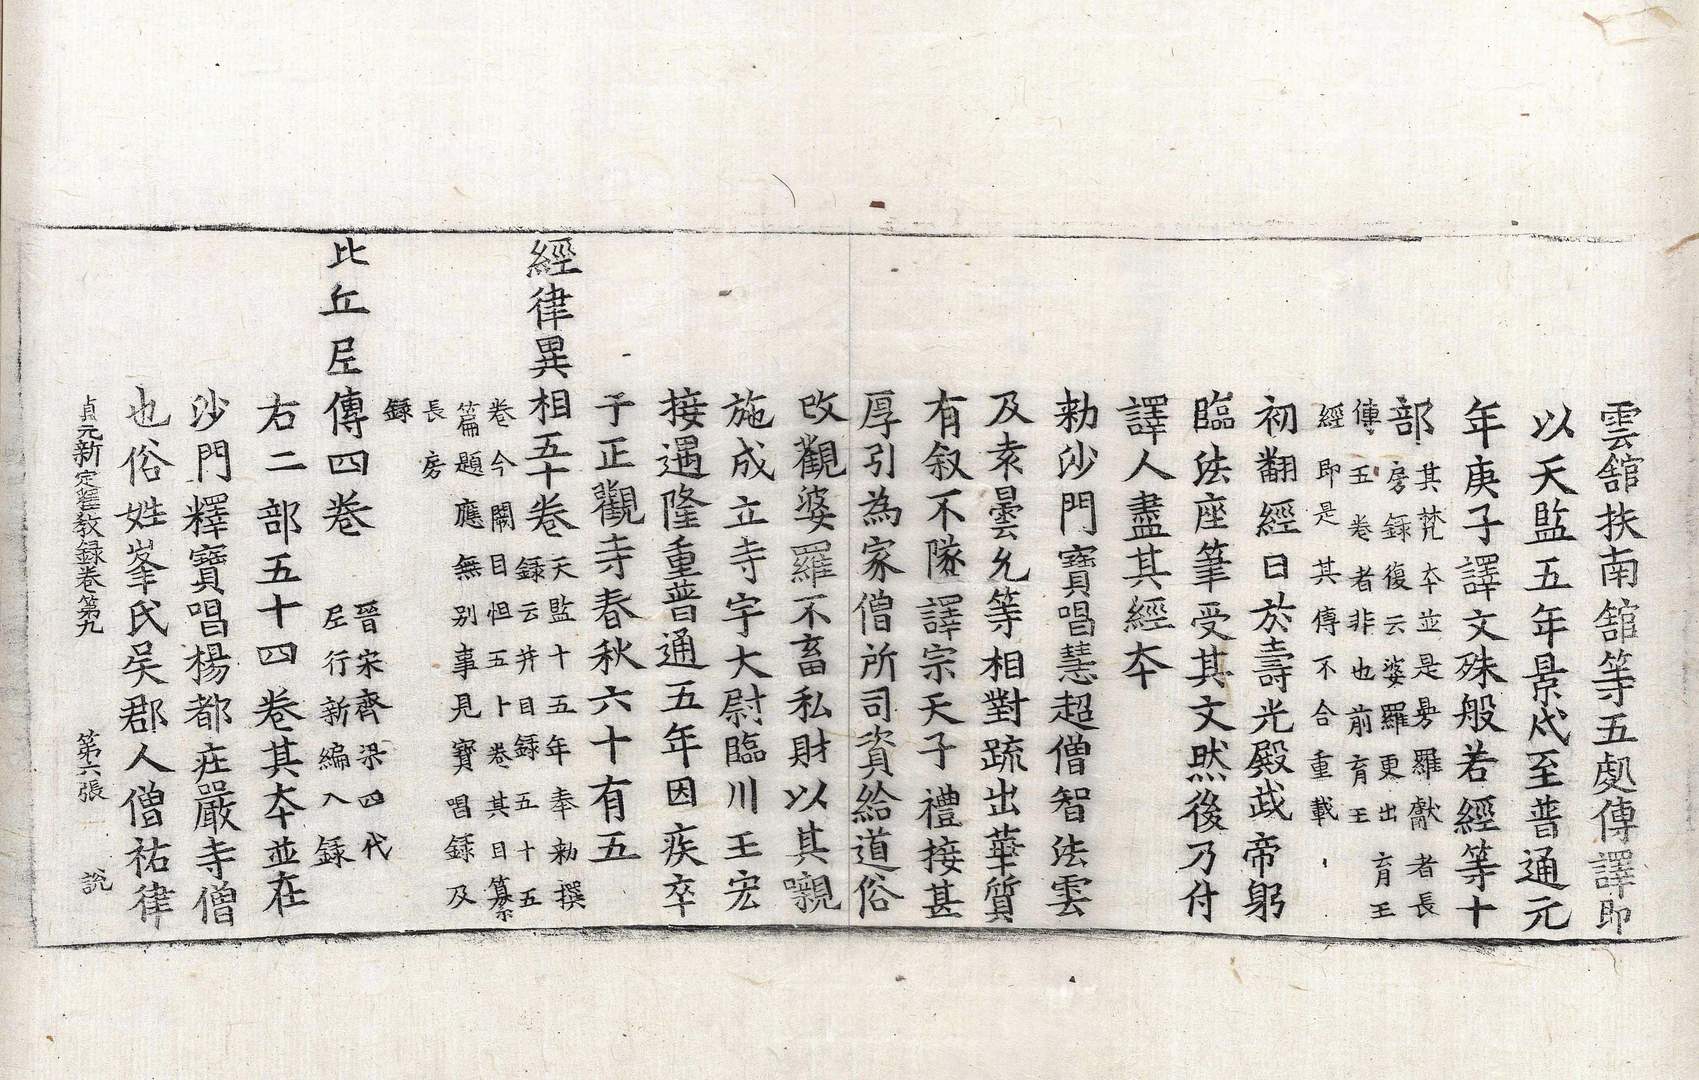 雲舘扶南舘等五䖏傳譯即
以天監五年景戍至普通元
年庚子譯文殊般若經等十
部其梵夲並是㬅羅獻者長
房録復云婆羅更出育王
傳五卷者非也前育王
經即是其傳不合重載
初翻經日於壽光殿武帝躬
臨法座筆受其文然後乃付
譯人盡其經夲
勑沙門寶唱慧超僧智法雲
及袁曇允等相對疏出華質
有叙不隊譯宗天子禮接甚
厚引為家僧所司資給道俗
改觀婆羅不畜私財以其嚫
施成立寺宇大尉臨川王宏
接遇隆重普通五年因疾卒
于正觀寺春秋六十有五
經律異相五十卷天監十五年奉勑撰
録云并目録五十五
卷今闕目但五卜卷其目纂
篇題應無别事見寶唱録及
長房
録
比丘尼傳四卷 晉宋齊梁四代
尼行新編入録
右二部五十四卷其夲並在
沙門釋寶唱楊都莊嚴寺僧
也俗姓岑氏吴郡人僧祐律
貞元新定釋教録卷第九 第六張 說